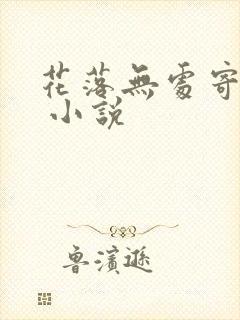 花落無處寄
小說
魯濱遜